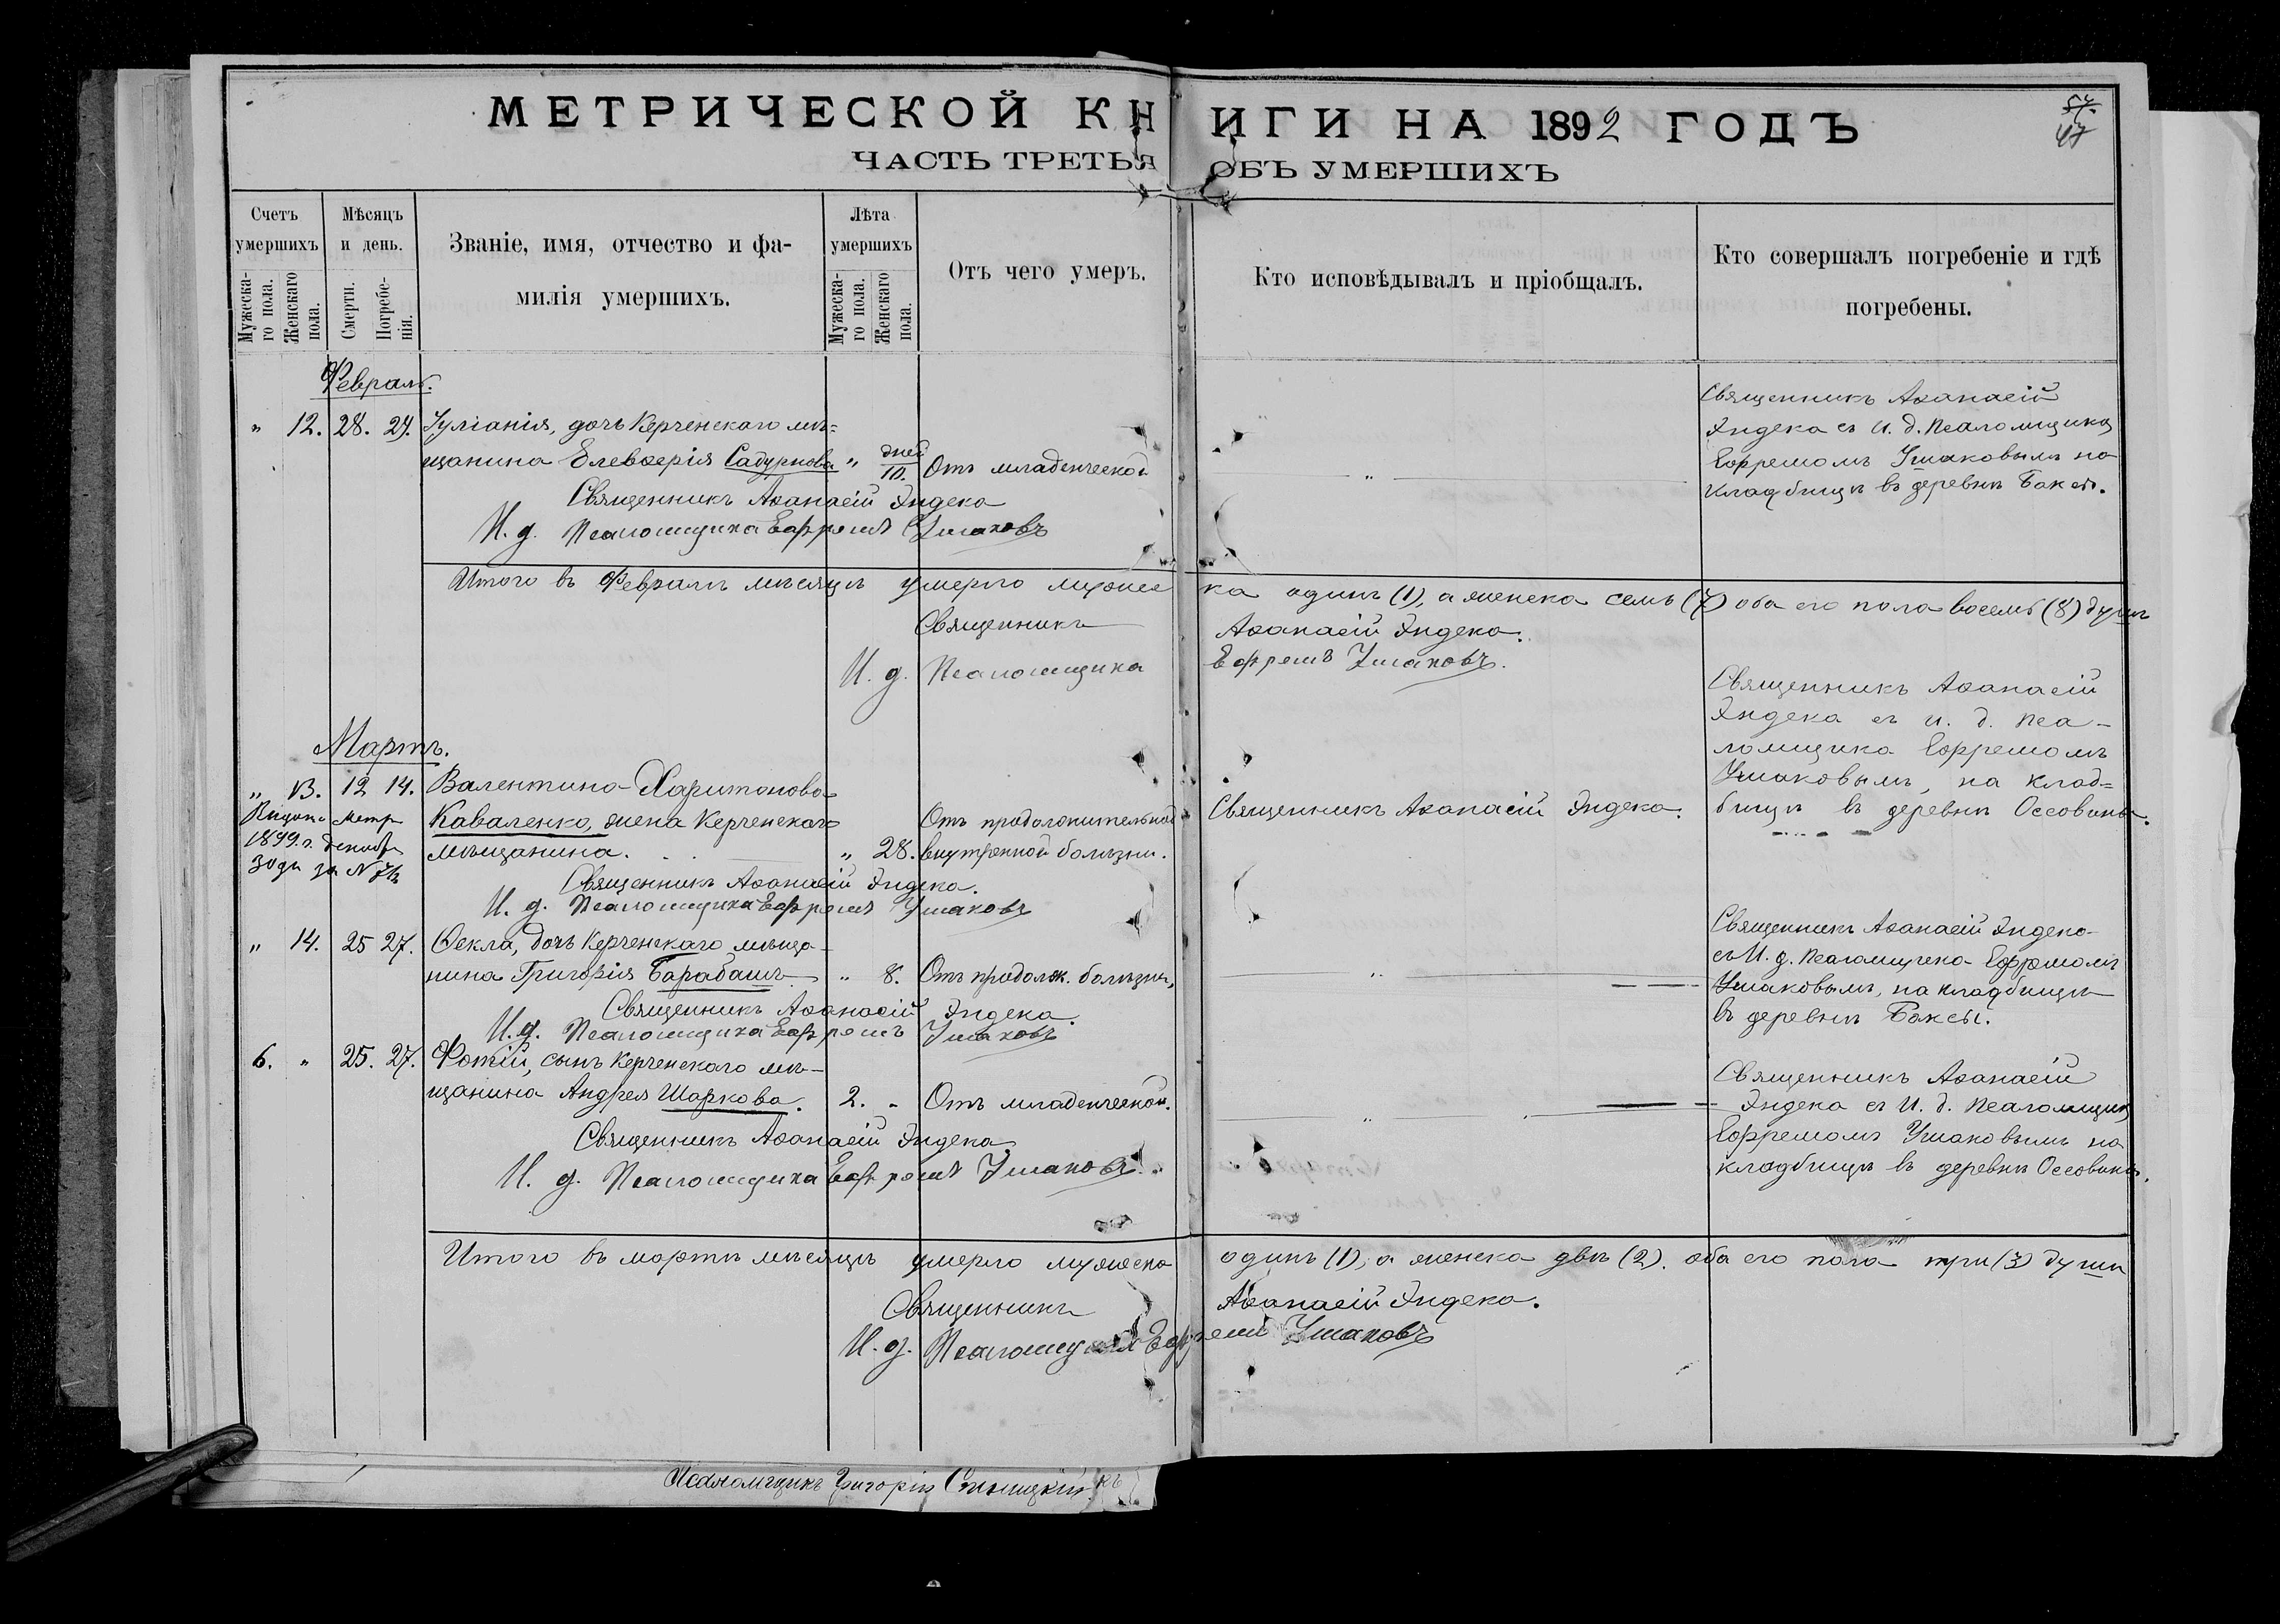 МЕТРИЧЕСКОЙ КНИГИ НА 1892 ГОДЪ
57.
47
ЧАСТЬ ТРЕТЬЯ ОБЪ УМЕРШИХЪ
Счетъ умершихъ
Мужеска-го пола.
Женскаго пола.
Мѣсяцъ и день.
Смерти.
Погребе-нія.
Званіе, имя, отчество и фа-
милія умершихъ.
Лѣта умершихъ
Мужеска-го пола.
Женскаго пола.
Отъ чего умеръ.
Кто исповѣдывалъ и пріобщалъ.
Кто совершалъ погребеніе и гдѣ
погребены.
Февраль.
" 12. 28. 29. Іуліанія, дочь Керченскаго мѣ-
щанина Елевѳерія Садурнова " дней 10. Отъ младенческой "
Священникъ Аѳанасій Эндека
И. д. Псаломщика Ефремъ Ушаковъ
Священникъ Аѳанасій
Эндека съ И. д. Псаломщика
Ефремомъ Ушаковымъ на
кладбищѣ въ деревнѣ Баксы.
Итого въ Февралѣ мѣсяцѣ умерло мужеска одинъ (1), а женска семь (7) оба его пола восемь (8) душъ
Священникъ Аѳанасій Эндека.
И. д. Псаломщика Ефремъ Ушаковъ.
Мартъ.
" 13. 12 14. Валентина Харитонова
Коваленко, жена Керченскаго Отъ продолжительной
мѣщанина. " 28. внутренной болѣзни.
1899 г. декабр
Священникъ Аѳанасій Эндека.
И. д. Псаломщика Ефремъ Ушаковъ
Священникъ Аѳанасій Эндека.
Священникъ Аѳанасій
Эндека съ и. д. Пса-
ломщика Ефремомъ
Ушаковымъ, на клад=
бищѣ въ деревнѣ Оссовины.
" 14. 25 27. Ѳекла, дочь Керченскаго мѣща-
нина Григорія Барабашъ " 8. Отъ продолж. болѣзни, "
Священникъ Аѳанасій Эндека.
И. д. Псаломщика Ефремъ Ушаковъ
Священникъ Аѳанасій Эндека
съ И. д. Псаломщика Ефремомъ
Ушаковымъ, на кладбищѣ
въ деревнѣ Баксы.
6. " 25. 27. Фотій, сынъ Керченскаго мѣ-
щанина Андрея Шаркова. 2. " Отъ младенческой. "
Священникъ Аѳанасій Эндека
И. д. Псаломщика Ефремъ Ушаковъ.
Священникъ Аѳанасій
Эндека съ И. д. Псаломщика
Ефремомъ Ушаковымъ на
кладбищѣ въ деревнѣ Оссовины.
Итого въ мартѣ мѣсяцѣ умерло мужеска одинъ (1), а женска двѣ (2). оба его пола три (3) души
Священникъ Аѳанасій Эндека.
И. д. Псаломщика Ефремъ Ушаковъ
Псаломщикъ Григорій